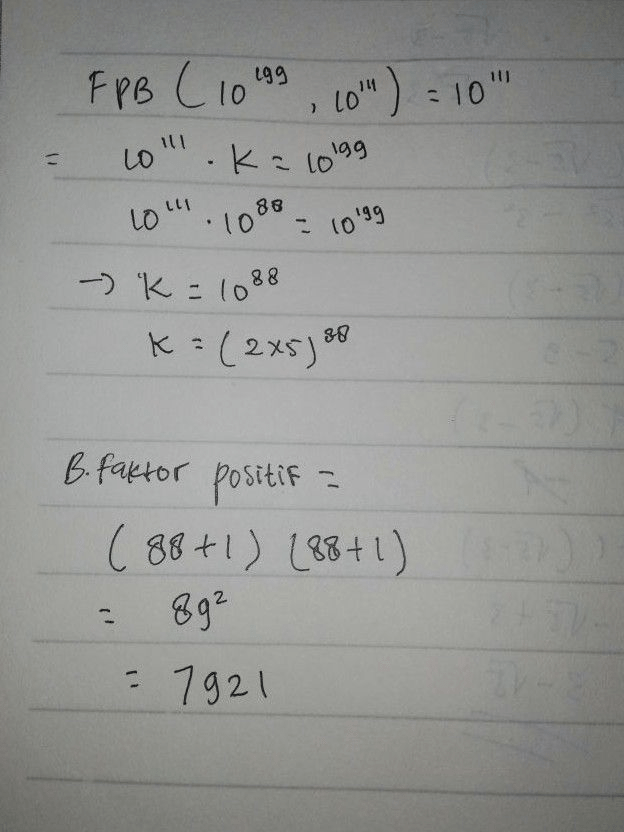 FPB (10¹⁹⁹, 10¹¹¹) = 10¹¹¹
= 10¹¹¹ . K = 10¹⁹⁹
10¹¹¹ . 10⁸⁸ = 10¹⁹⁹
→ K = 10⁸⁸
K = (2×5)⁸⁸
B. faktor positif =
(88+1) (88+1)
= 89²
= 7921